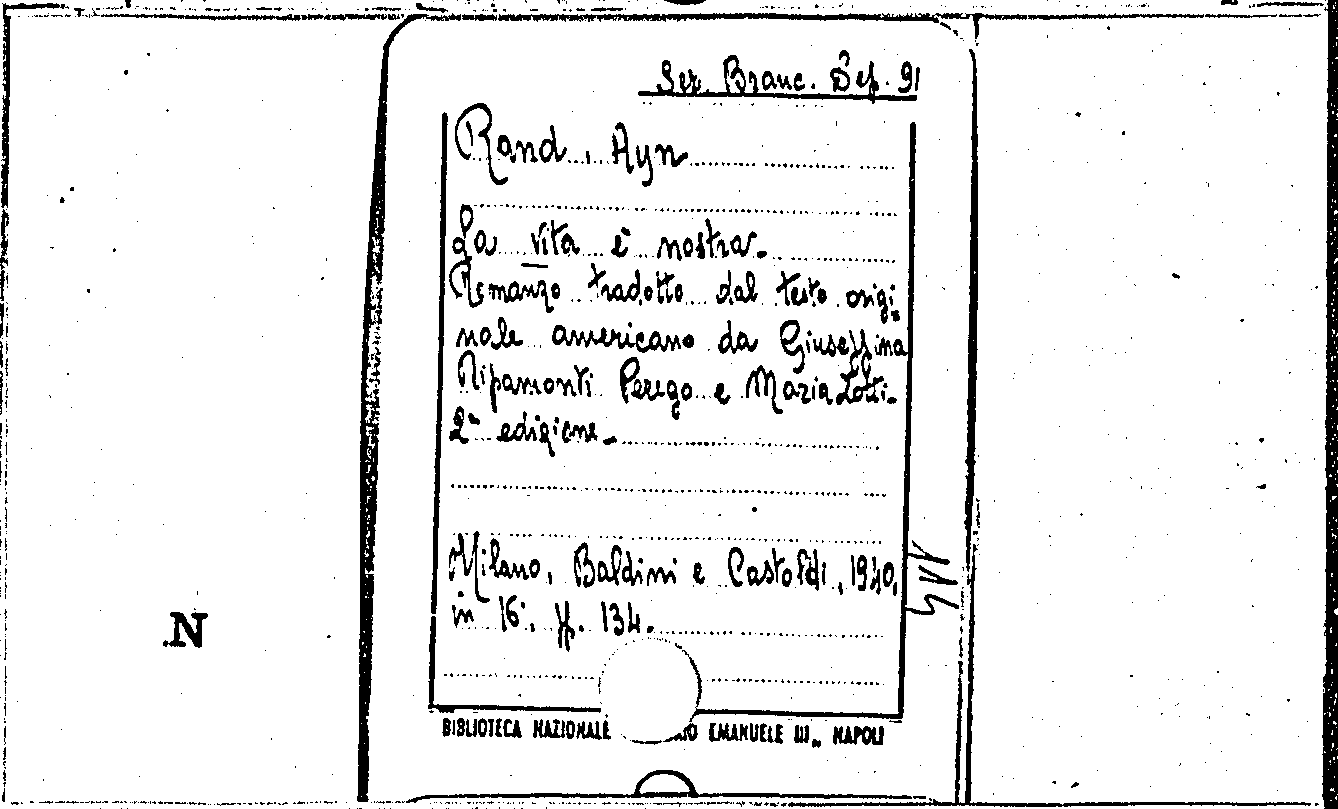 Ser. Branc. Dep. 91
Rand, Ayn
La vita è nostra.
Romanzo tradotto dal testo origi=
nale americano da Giuseppina
Ripamonti Perego e Maria Lotti.
2ª edizione.
Milano, Baldini e Castoldi, 1940,
in 16°. pp. 134.
N
BIBLIOTECA NAZIONALE EMANUELE III„ NAPOLI